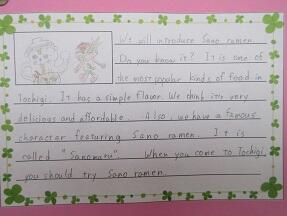 We will introduce Sano ramen.
Do you know it? It is one of
the most popular kinds of food in
Tochigi. It has a simple flavor. We think it's very
delicious and affordable. Also, we have a famous
character featuring Sano ramen. It is
called "Sanomaru". When you come to Tochigi,
you should try Sano ramen.